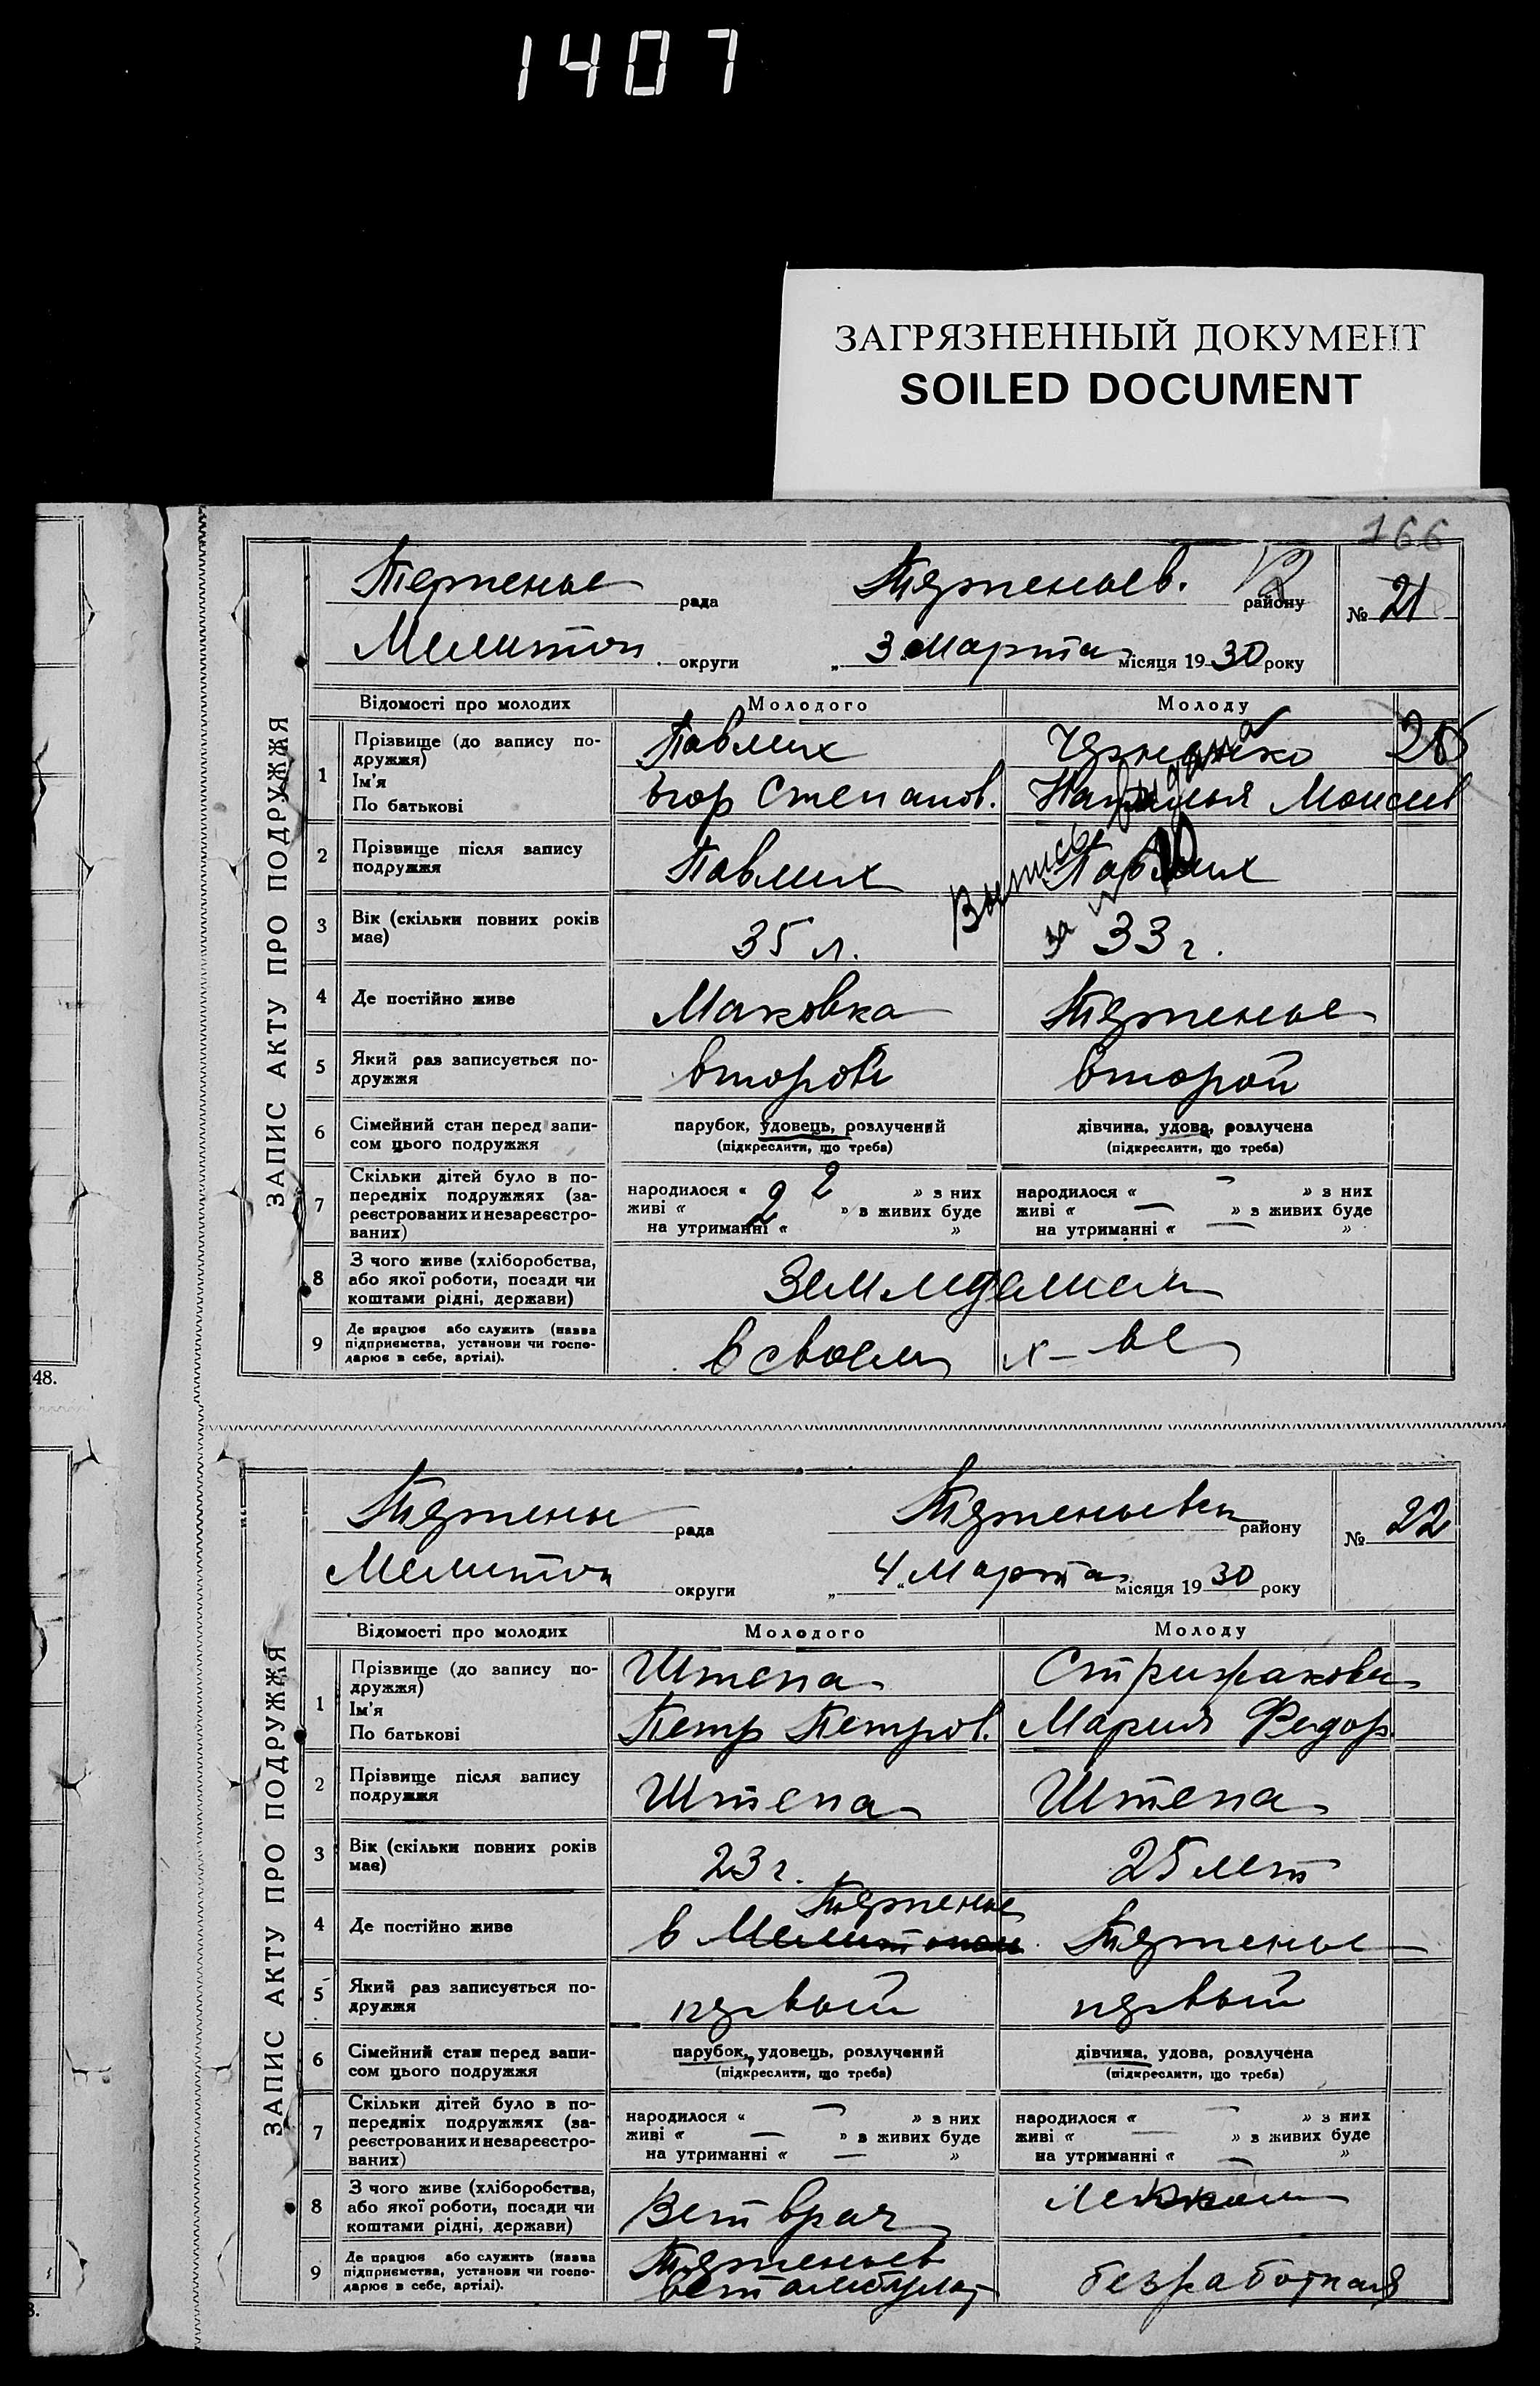 1407
ЗАГРЯЗНЕННЫЙ ДОКУМЕНТ
SOILED DOCUMENT
166
ЗАПИС АКТУ ПРО ПОДРУЖЖЯ
Терпенье рада Терпеньев. району № 21
Мелитоп округи „ 3 Марта місяця 1930 року
Відомості про молодих Молодого Молоду
1 Прізвище (до запису подружжя) Павлих
Ім'я
По батькові Егор Степанов. Наталья Моисеев
2 Прізвище після запису
подружжя Павлих Павлих
Выписъ выдана
за
3 Вік (скільки повних років
має) 35 л. 33 г.
4 Де постійно живе Маковка Терпенье
5 Який раз записується по-
дружжя второй второй
6 Сімейний стан перед запи-
сом цього подружжя парубок, удовець, розлучений дівчина, удова, розлучена
(підкреслити, що треба) (підкреслити, що треба)
7 Скільки дітей було в по-
передніх подружжях (за-
реєстрованих и незареєстро-
ваних)
народилося « 2 » з них народилося « — » з них
живі « 2 » в живих буде живі « — » в живих буде
на утриманні « » на утриманні « — »
8 З чого живе (хліборобства,
або якої роботи, посади чи
коштами рідні, держави) Земледелием
9 Де працює або служить (назва
підприємства, установи чи госпо-
дарює в себе, артілі). в своем х-ве
48.
ЗАПИС АКТУ ПРО ПОДРУЖЖЯ
Терпенье рада Терпеньевск району № 22
Мелитоп округи „ 4 “ Марта місяця 1930 року
Відомості про молодих Молодого Молоду
1 Прізвище (до запису по-
дружжя) Штепа
Ім'я
По батькові Петр Петров. Мария Федор.
2 Прізвище після запису
подружжя Штепа Штепа
3 Вік (скільки повних років
має) 23 г. 25 лет
4 Де постійно живе в Мелитополе Терпенье Терпенье
5 Який раз записується по-
дружжя первый первый
6 Сімейний стан перед запи-
сом цього подружжя парубок, удовець, розлучений дівчина, удова, розлучена
(підкреслити, що треба) (підкреслити, що треба)
7 Скільки дітей було в по-
передніх подружжях (за-
реєстрованих и незареєстро-
ваних)
народилося « — » з них народилося « — » з них
живі « — » в живих буде живі « — » в живих буде
на утриманні « — » на утриманні « — »
8 З чого живе (хліборобства,
або якої роботи, посади чи
коштами рідні, держави) Ветврач лекпом
9 Де працює або служить (назва
підприємства, установи чи госпо-
дарює в себе, артілі). Терпеньев
ветамбулат безработная